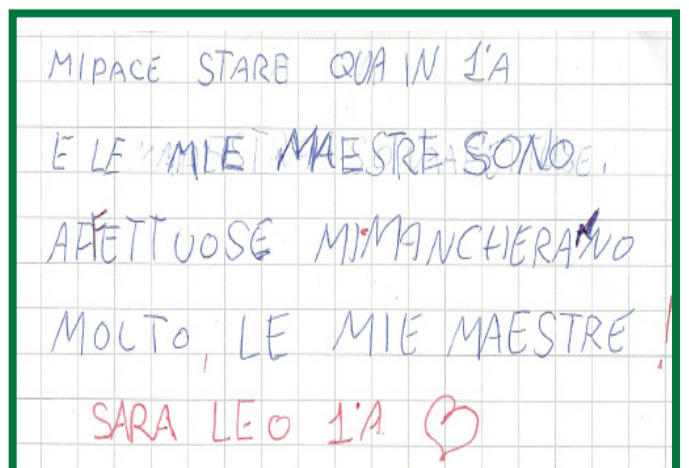 MIPACE STARE QUA IN 1'A
E LE MIE MAESTRE SONO
AFFETTUOSE MI MANCHERANNO
MOLTO, LE MIE MAESTRE!
SARA LEO 1'A